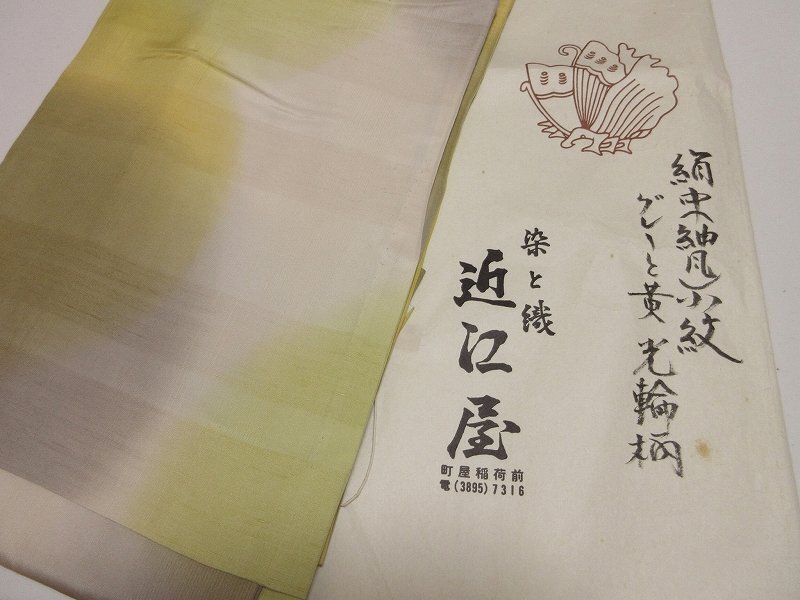 絹中紬風小紋
グレーと黄 光輪柄
染と織
近江屋
町屋稲荷前
電(3895)7316